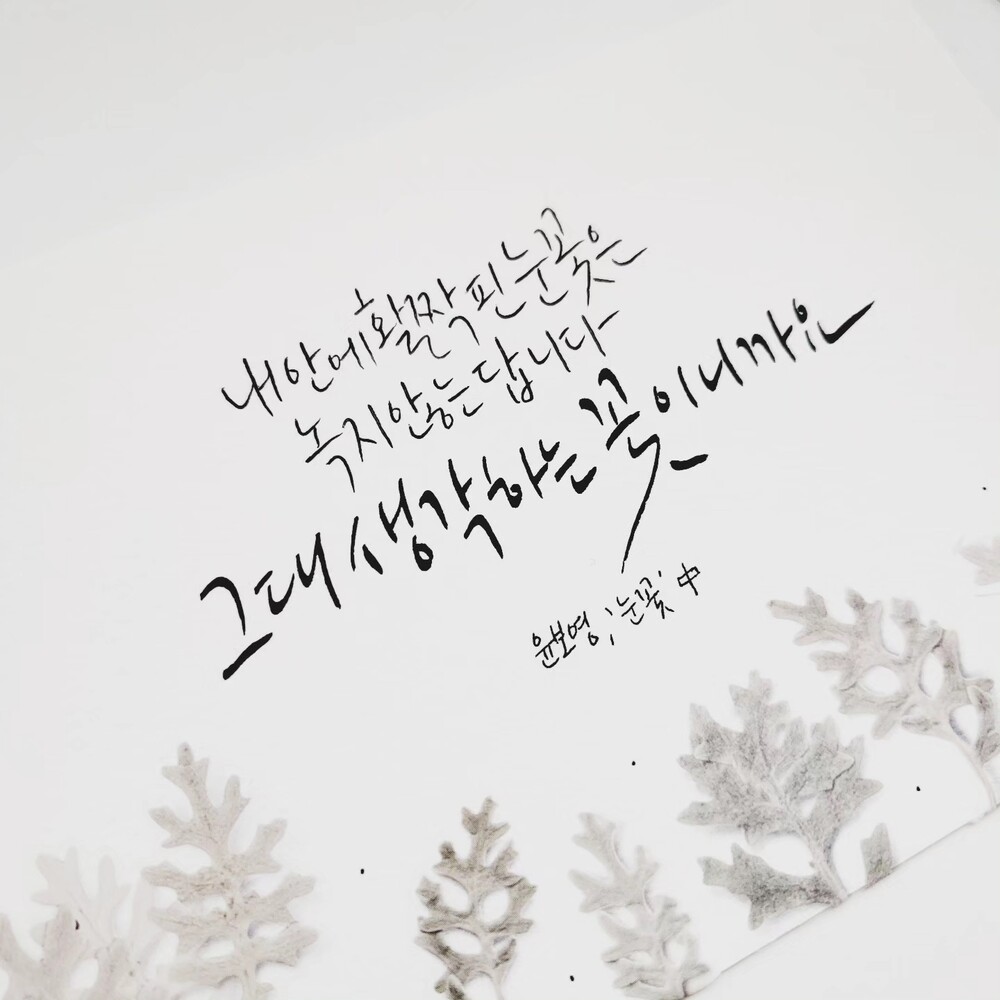 내 안에 활짝 핀 눈꽃은
녹지 않는답니다
그대 생각하는 꽃이니까요
윤보영, '눈꽃' 中